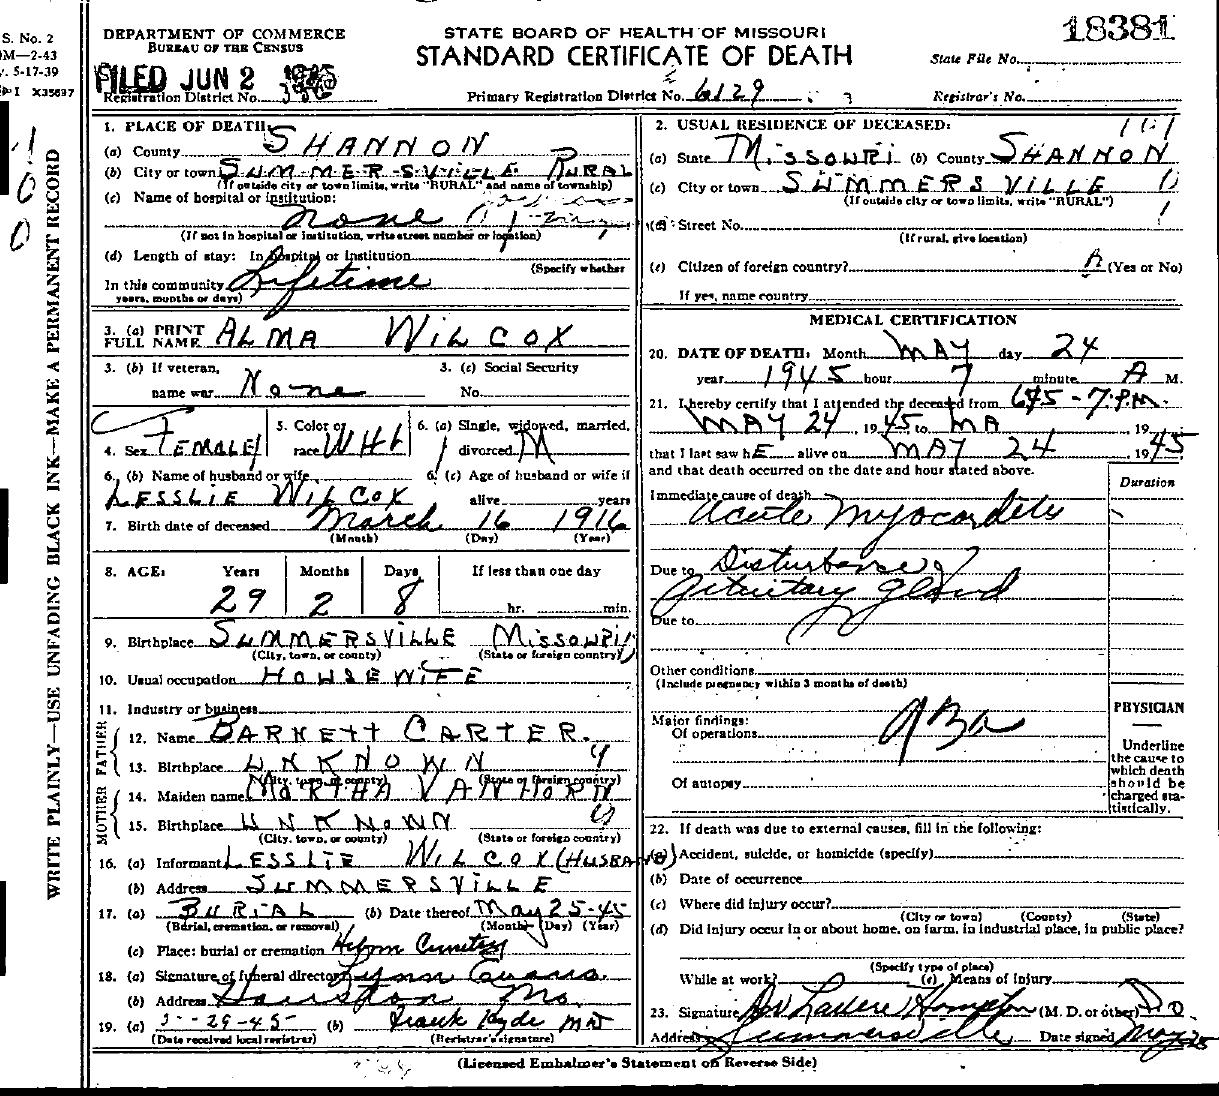 S. No. 2
M—2-43
5-17-39
X35697
WRITE PLAINLY—USE UNFADING BLACK INK—MAKE A PERMANENT RECORD
DEPARTMENT OF COMMERCE
BUREAU OF THE CENSUS
STATE BOARD OF HEALTH OF MISSOURI
STANDARD CERTIFICATE OF DEATH
18381
State File No.
FILED JUN 2 1945
Registration District No.
Primary Registration District No. 6129
Registrar's No.
1. PLACE OF DEATH:
(a) County SHANNON
(b) City or town SUMMERSVILLE RURAL
(If outside city or town limits, write "RURAL" and name of township)
(c) Name of hospital or institution:
None
(If not in hospital or institution, write street number or location)
(d) Length of stay: In hospital or institution
(Specify whether
In this community Lifetime
years, months or days)
3. (a) PRINT FULL NAME ALMA WILCOX
3. (b) If veteran, name war None
3. (c) Social Security No.
4. Sex FEMALE
5. Color or race WHI
6. (a) Single, widowed, married, divorced M
6. (b) Name of husband or wife
LESSLIE WILCOX
6. (c) Age of husband or wife if alive years
7. Birth date of deceased March 16 1916
(Month) (Day) (Year)
8. AGE: Years Months Days If less than one day
29 2 8 hr. min.
9. Birthplace SUMMERSVILLE MISSOURI
(City, town, or county) (State or foreign country)
10. Usual occupation HOUSEWIFE
11. Industry or business
FATHER
12. Name BARNETT CARTER.
13. Birthplace UNKNOWN
(City, town, or county) (State or foreign country)
MOTHER
14. Maiden name MARTHA VANHORN
15. Birthplace UNKNOWN
(City, town, or county) (State or foreign country)
16. (a) Informant LESSLIE WILCOX (HUSBAND)
(b) Address SUMMERSVILLE
17. (a) BURIAL (b) Date thereof May 25-45
(Burial, cremation, or removal) (Month) (Day) (Year)
(c) Place: burial or cremation Cemetery
18. (a) Signature of funeral director Lynn Evans.
(b) Address Houston Mo.
19. (a) 5-29-45 (b) Frank Hyde MD
(Date received local registrar) (Registrar's signature)
2. USUAL RESIDENCE OF DECEASED:
(a) State MISSOURI (b) County SHANNON
(c) City or town SUMMERSVILLE
(If outside city or town limits, write "RURAL")
(d) Street No.
(If rural, give location)
(e) Citizen of foreign country? (Yes or No)
If yes, name country
MEDICAL CERTIFICATION
20. DATE OF DEATH: Month MAY day 24
year 1945 hour 7 minute A M.
21. I hereby certify that I attended the deceased from 6:45 - 7 P.M.
MAY 24, 1945 to MA , 19
that I last saw hE alive on MAY 24, 1945
and that death occurred on the date and hour stated above.
Duration
Immediate cause of death
Acute Myocarditis
Due to Disturbance of
Pituitary Gland
Due to
Other conditions
(Include pregnancy within 3 months of death)
PHYSICIAN
Major findings:
Of operations
Of autopsy
Underline the cause to which death should be charged statistically.
22. If death was due to external causes, fill in the following:
(a) Accident, suicide, or homicide (specify)
(b) Date of occurrence
(c) Where did injury occur?
(City or town) (County) (State)
(d) Did injury occur in or about home, on farm, in industrial place, in public place?
(Specify type of place)
While at work? (e) Means of injury
23. Signature (M. D. or other) D O
Address Summersville Date signed May 25
(Licensed Embalmer's Statement on Reverse Side)